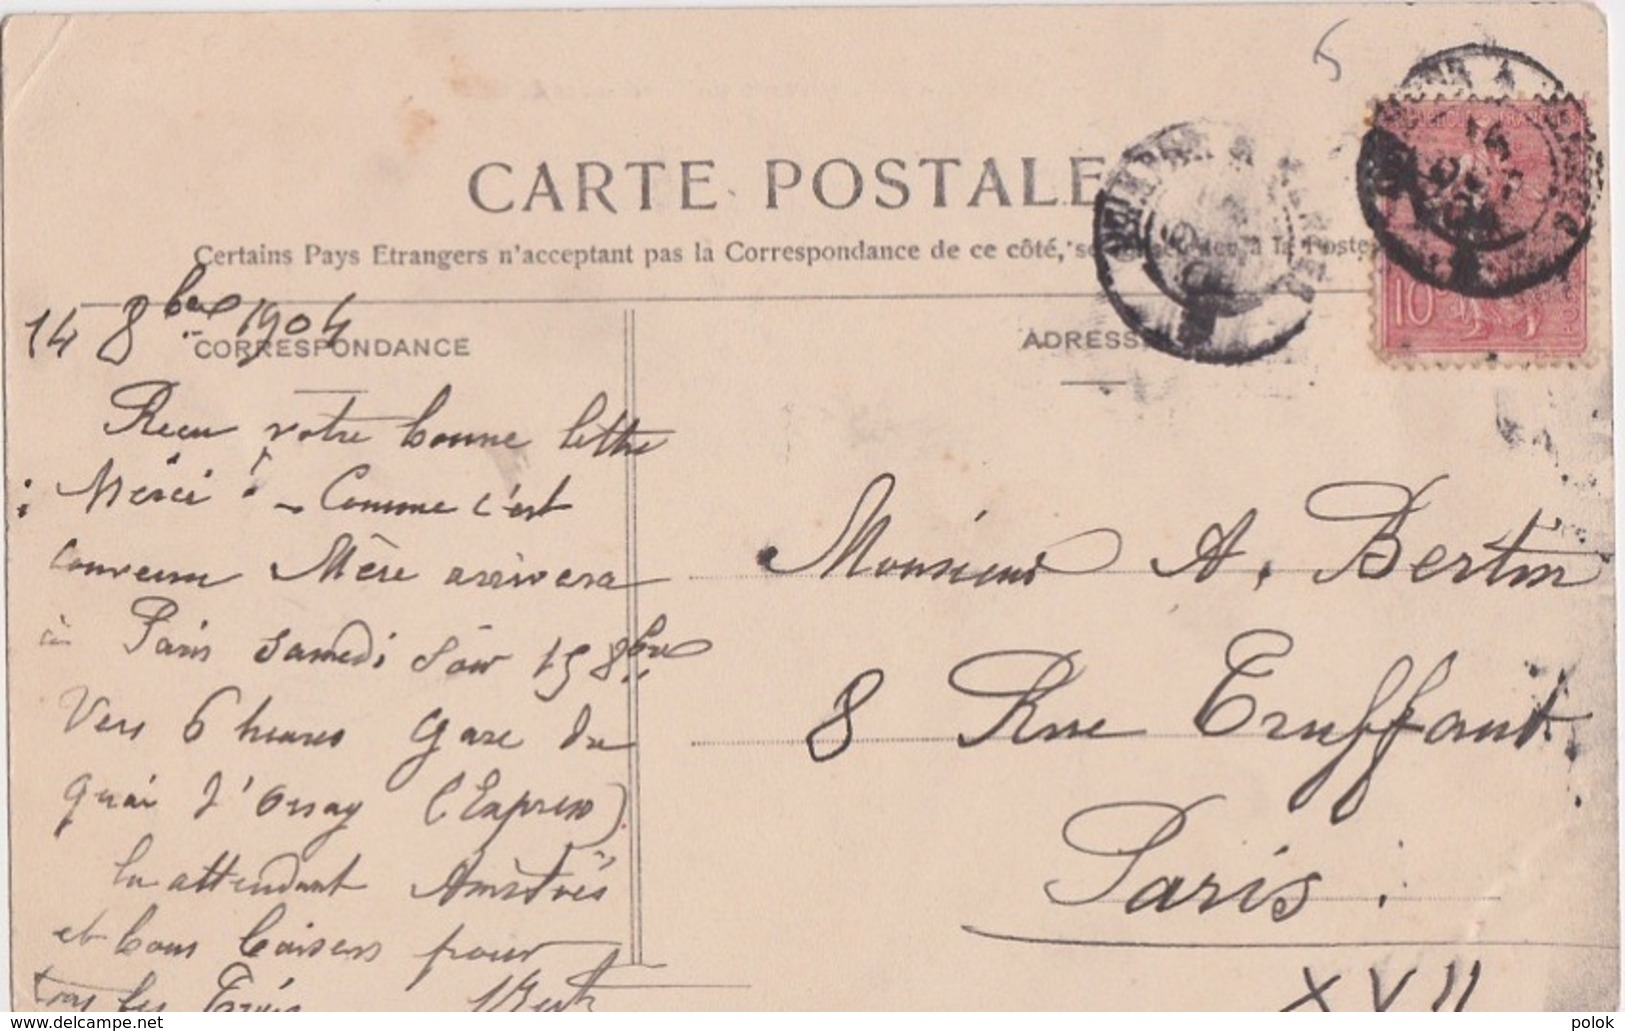 CARTE POSTALE
Certains Pays Etrangers n'acceptant pas la Correspondance de ce côté, à la Poste
14 8bre 1904
CORRESPONDANCE
ADRESS
Recu votre bonne lettre
Merci ! - Comme c'est
convenu Mère arrivera
à Paris samedi soir 15 8bre
Vers 6 heures Gare du
Quai d'Orsay (Express)
En attendant Amitiés
et bons baisers pour
tous les Trois
10
Monsieur A. Bertin
8 Rue Truffaut
Paris
XVII
delcampe.net
polok